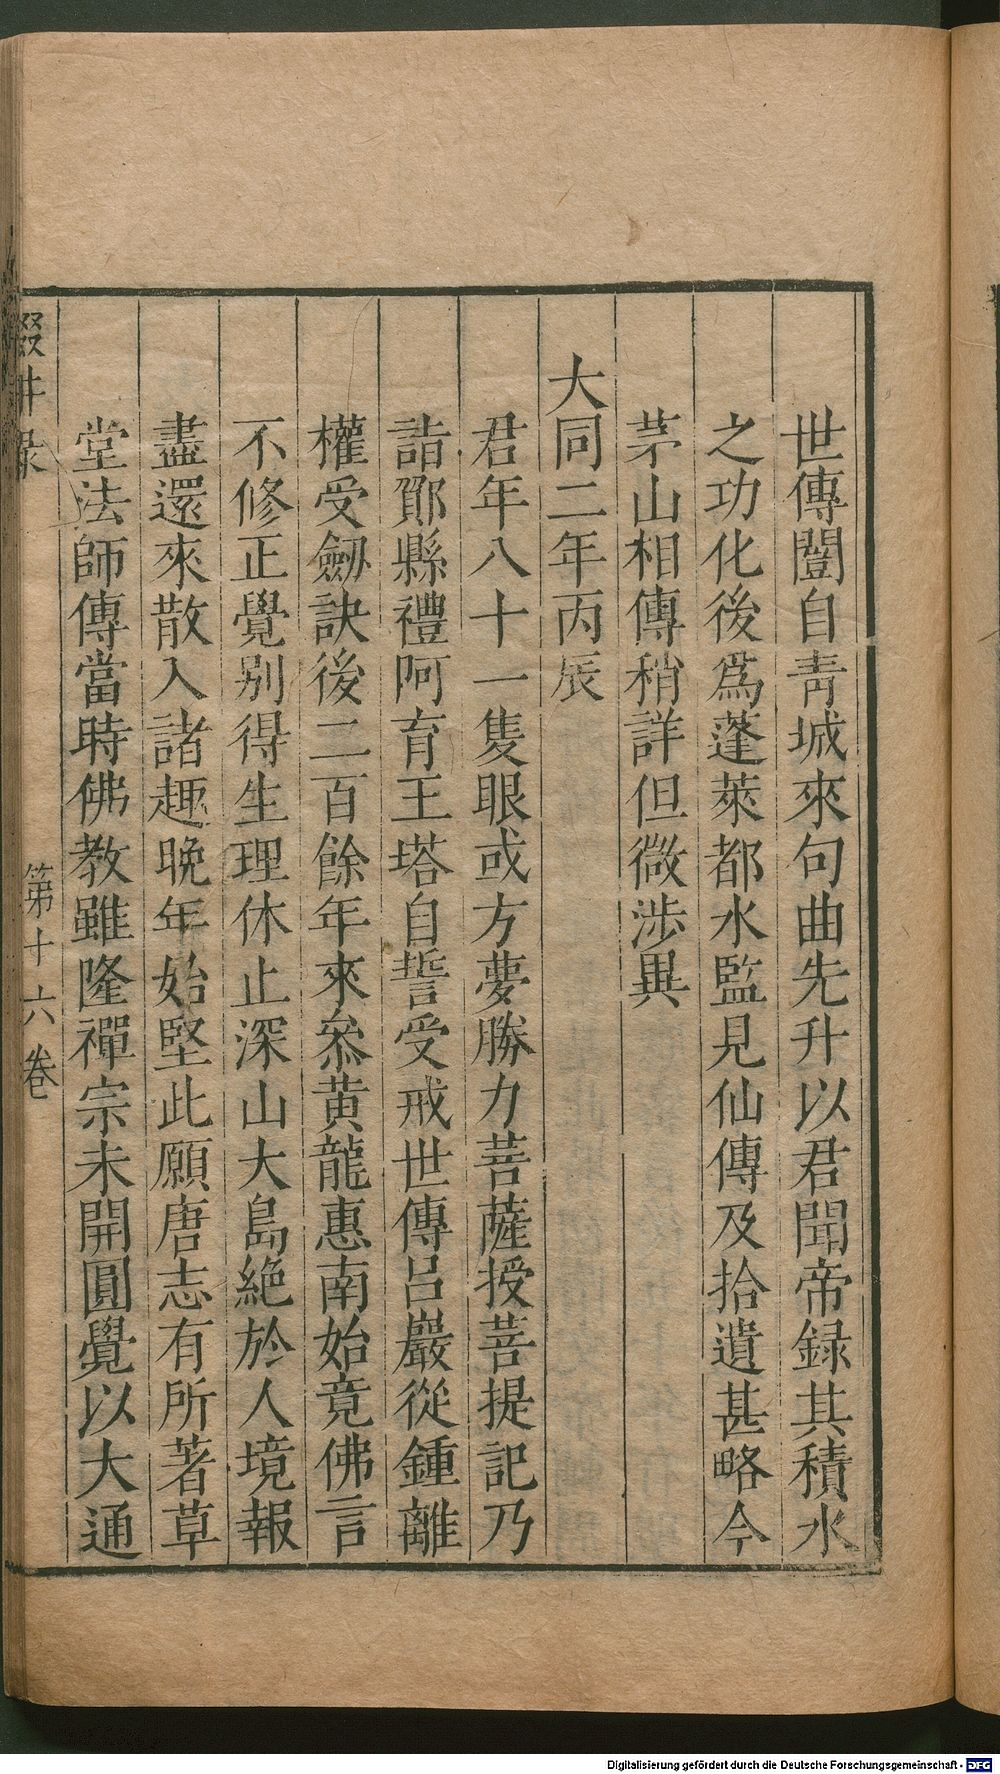 世傳闓自靑城來句曲先升以君聞帝録其積水
之功化後爲蓬萊都水監見仙傳及拾遺甚略今
茅山相傳稍詳但微渉異
大同二年丙辰
君年八十一隻眼或方夢勝力菩薩授菩提記乃
詣鄮縣禮阿育王塔自誓受戒世傳呂巖從鍾離
權受劒訣後二百餘年來叅黄龍惠南始竟佛言
不修正覺别得生理休止深山大島絶於人境報
盡還來散入諸趣晚年始堅此願唐志有所著草
堂法師傳當時佛教雖隆禪宗未開圓覺以大通
第十六卷
Digitalisierung gefördert durch die Deutsche Forschungsgemeinschaft - DFG